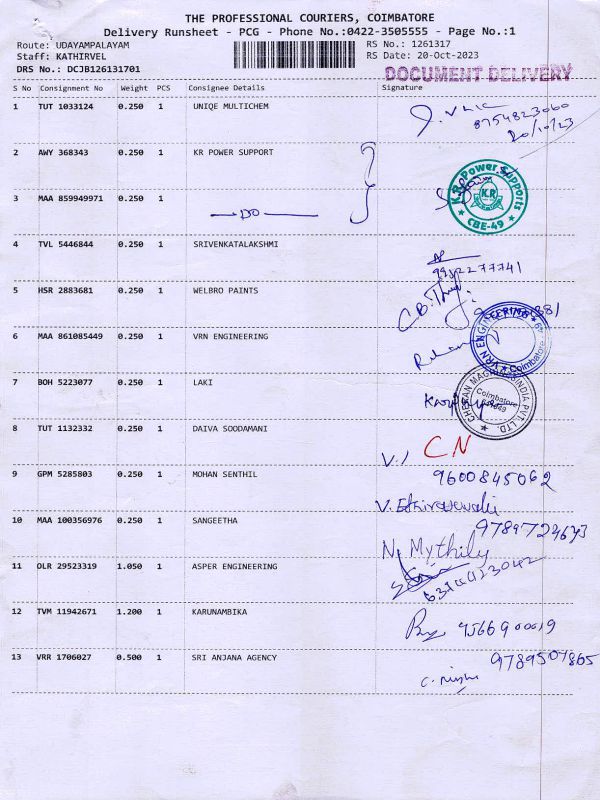 THE PROFESSIONAL COURIERS, COIMBATORE
Delivery Runsheet - PCG - Phone No.:0422-3505555 - Page No.:1
Route: UDAYAMPALAYAM
Staff: KATHIRVEL
DRS No.: DCJB126131701
RS No.: 1261317
RS Date: 20-Oct-2023
DOCUMENT DELIVERY
S No Consignment No Weight PCS Consignee Details Signature
1 TUT 1033124 0.250 1 UNIQE MULTICHEM
8754823060
20/10/23
2 AWY 368343 0.250 1 KR POWER SUPPORT
K.R. Power Supports
K.R
CBE-49
3 MAA 859949971 0.250 1
DO
4 TVL 5446844 0.250 1 SRIVENKATALAKSHMI
5 HSR 2883681 0.250 1 WELBRO PAINTS
6 MAA 861085449 0.250 1 VRN ENGINEERING
VRN ENGINEERING
Coimbatore
7 BOH 5223077 0.250 1 LAKI
Coimbatore
8 TUT 1132332 0.250 1 DAIVA SOODAMANI
CN
9 GPM 5285803 0.250 1 MOHAN SENTHIL
9600845062
10 MAA 100356976 0.250 1 SANGEETHA
N. Mythily
11 OLR 29523319 1.050 1 ASPER ENGINEERING
12 TVM 11942671 1.200 1 KARUNAMBIKA
13 VRR 1706027 0.500 1 SRI ANJANA AGENCY